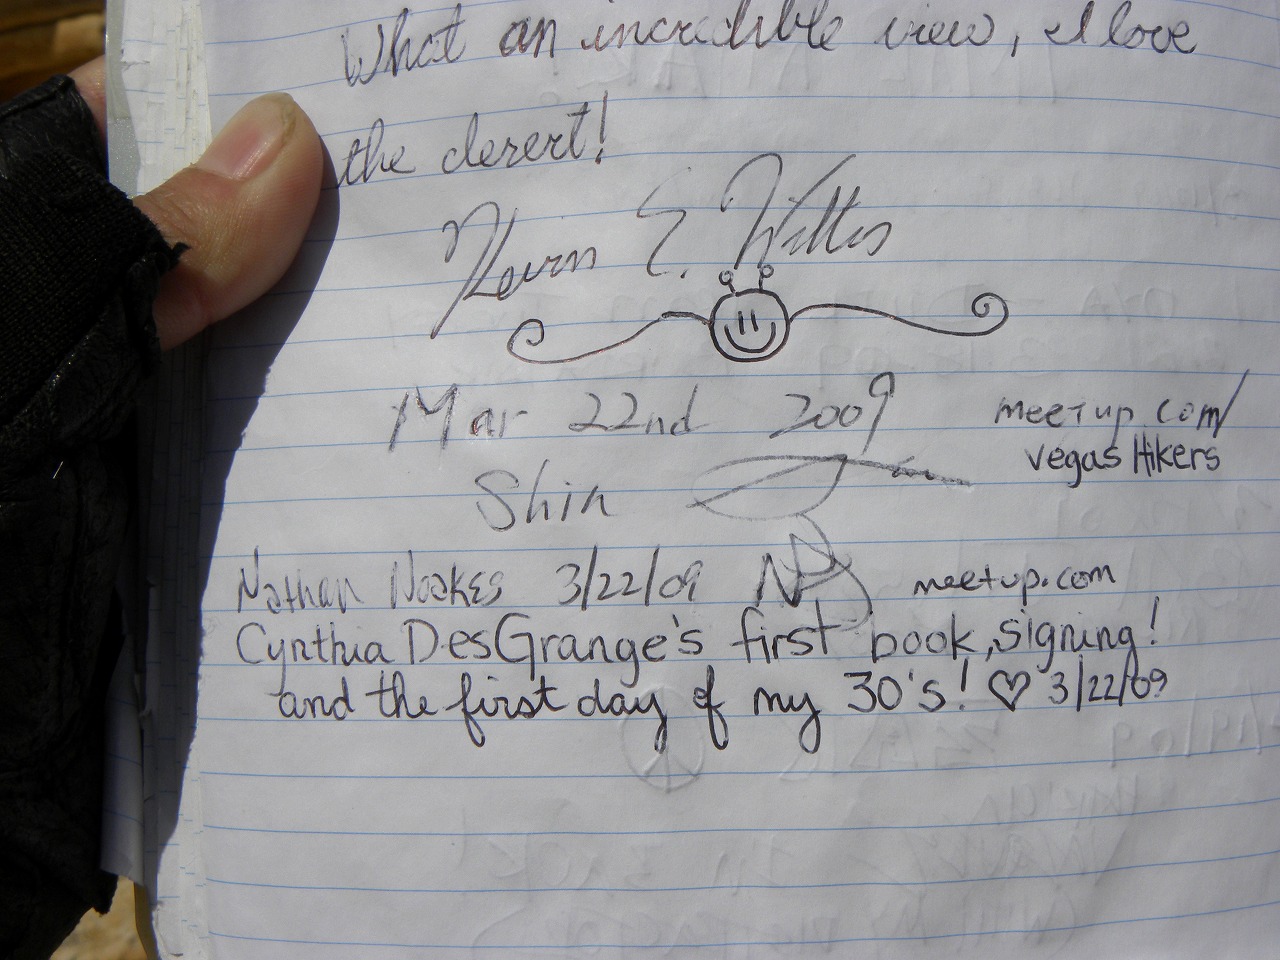 What an incredible view, I love
the desert!
Kevin E.
Mar 22nd 2009
meetup.com/
Vegas Hikers
Shin
Nathan Noakes 3/22/09 meetup.com
Cynthia DesGrange's first book, signing!
and the first day of my 30's! ♡ 3/22/09